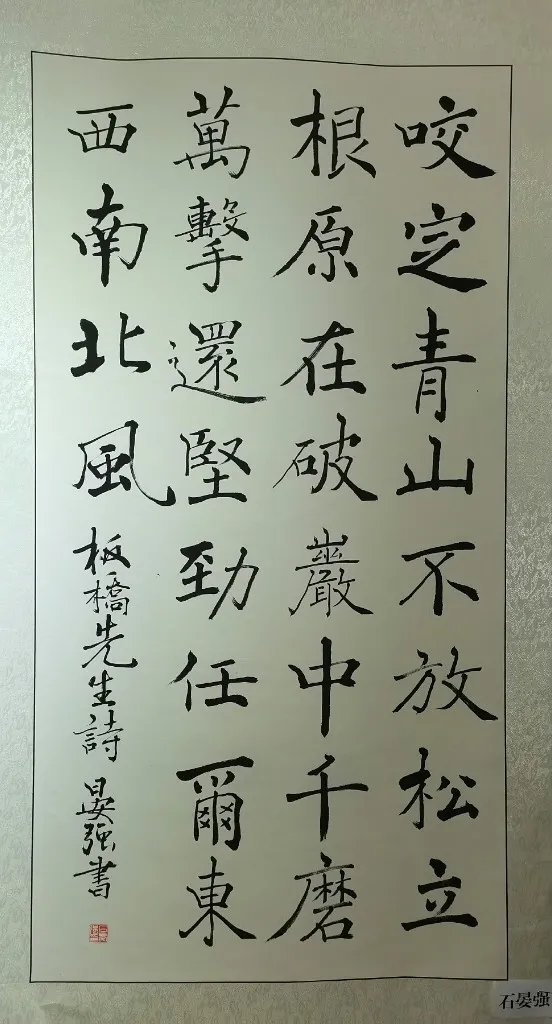 咬定青山不放松立
根原在破巖中千磨
萬擊還堅勁任爾東
西南北風
板橋先生詩 晏强書
石晏强